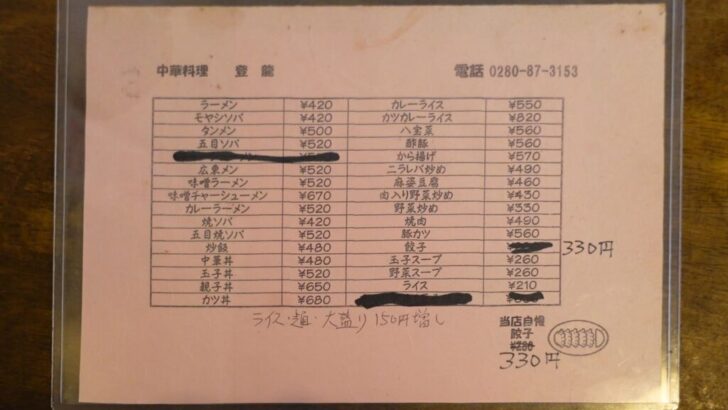 中華料理 登龍 電話 0280-87-3153
ラーメン ¥420 カレーライス ¥550
モヤシソバ ¥420 カツカレーライス ¥820
タンメン ¥500 八宝菜 ¥560
五目ソバ ¥520 酢豚 ¥560
から揚げ ¥570
広東メン ¥520 ニラレバ炒め ¥490
味噌ラーメン ¥520 麻婆豆腐 ¥460
味噌チャーシューメン ¥670 肉入り野菜炒め ¥430
カレーラーメン ¥520 野菜炒め ¥330
焼ソバ ¥420 焼肉 ¥490
五目焼ソバ ¥520 豚カツ ¥560
炒飯 ¥480 餃子 330円
中華丼 ¥480 玉子スープ ¥260
玉子丼 ¥520 野菜スープ ¥260
親子丼 ¥650 ライス ¥210
カツ丼 ¥680
ライス・麺・大盛り 150円増し
当店自慢
餃子
¥280
330円